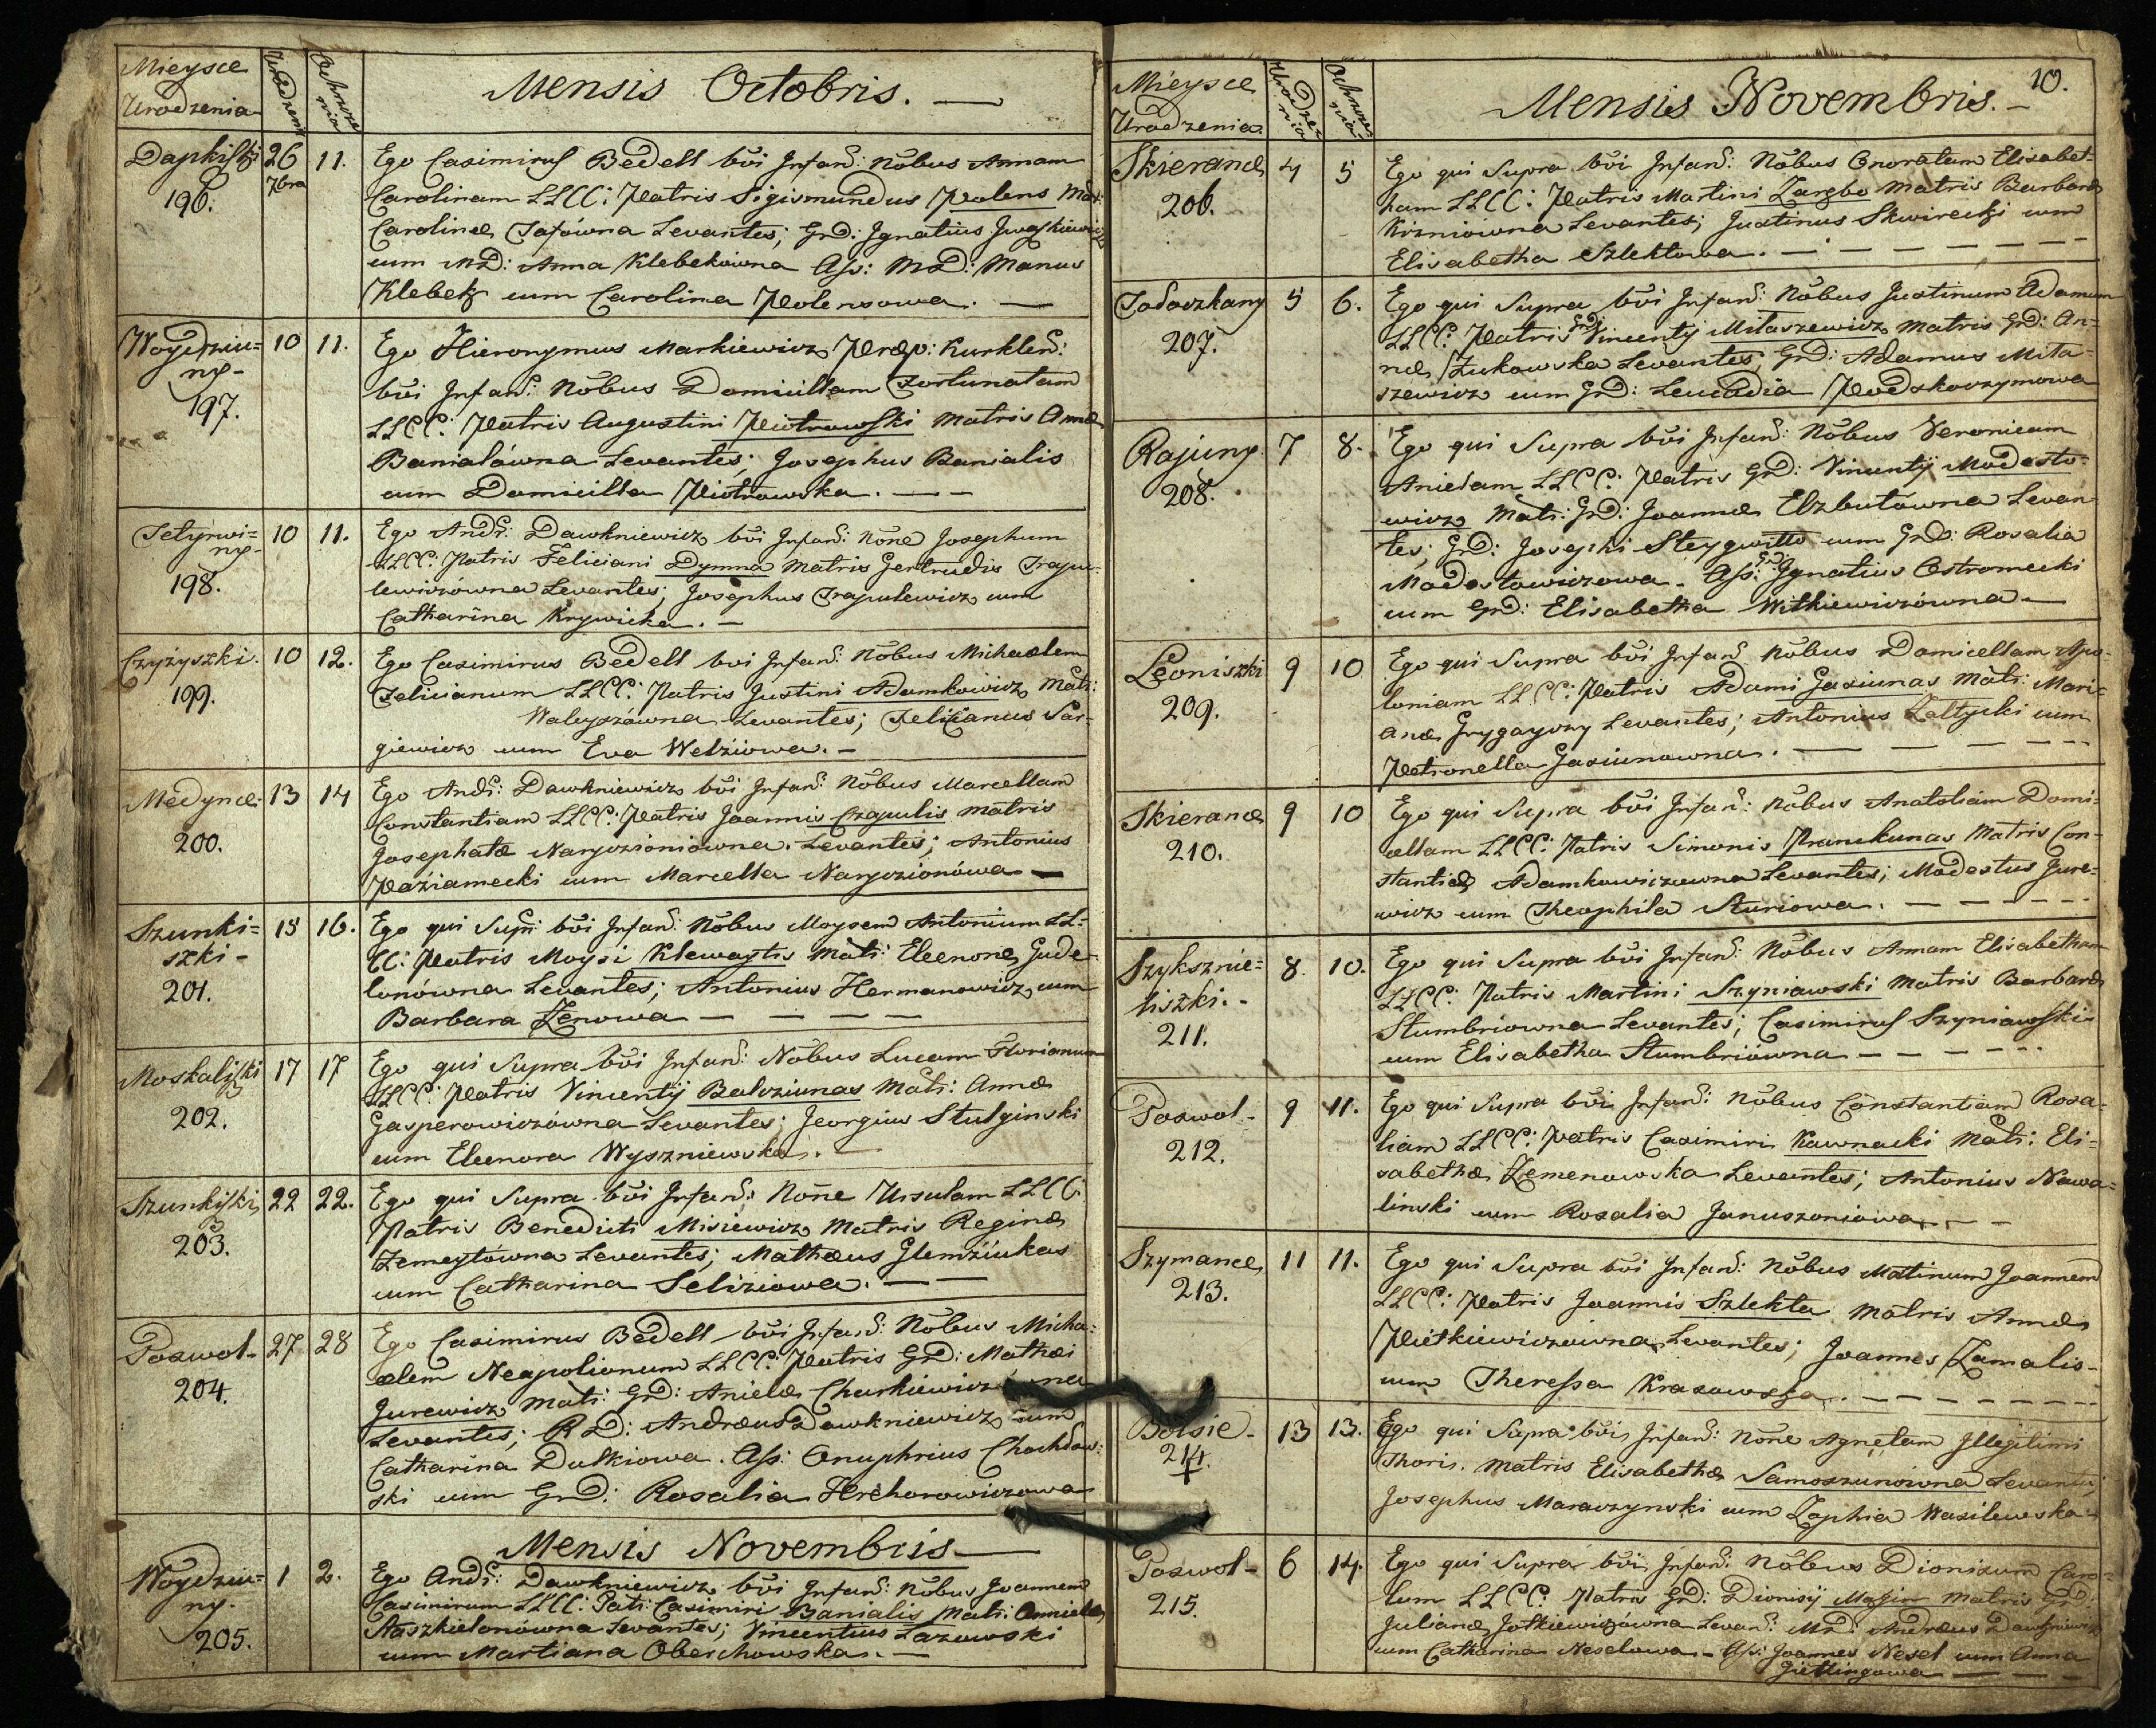 Mieysce
Urodzenia
Urodzenia
Ochrzczenia
Mensis Octobris. —
Dapkiszki
196.
26
7bra
11.
Ego Casimirus Bedell bŏi Infañd: Nŏbus Annam
Carolinam LLCC: Patris Sigismundus Polens Mat:
Carolinæ Jofówna Levantes; GD: Ignatius Iwaszkiewicz
cum MD: Anna Klebekówna Ass: MD: Manus
Klebek cum Carolina Polensowa. —
Woydziu=
ny-
197.
10
11.
Ego Hieronymus Markiewicz Præp: Kurkleñ:
bŏi Infañd: Nŏbus Domicillam Fortunatam
LLCC: Patris Augustini Piotrowski Matris Annæ
Banialówna Levantes; Josephus Banialis
cum Domicilla Piotrowska. — —
Tetyrwi=
ny-
198.
10
11.
Ego Andr: Dawkniewicz bŏi Infañd: Nŏne Josephum
LLCC: Patris Feliciani Dymna Matris Gertrudis Trapu-
lewiczówna Levantes; Josephus Trapulewicz cum
Catharina Krywicka. —
Czyżyszki.
199.
10
12.
Ego Casimirus Bedell bŏi Infañd: Nŏbus Michaelem
Felicianum LLCC: Patris Justini Adamkowicz Mat:
Walugzówna Levantes; Felicianus Sar-
giewicz cum Eva Welżiowa. —
Medynce-
200.
13
14
Ego Andr: Dawkniewicz bŏi Infañd: Nŏbus Marcellam
Constantiam LLCC: Patris Joannis Czapulis Matris
Josephatæ Naryozioniówna. Levantes; Antonius
Poźiamecki cum Marcella Naryozionówa —
Szunki=
szki-
201.
15
16.
Ego qui Supr: bŏi Infañd: Nŏbus Moysem Antonium LL-
CC: Patris Moysi Klewaytis Mat: Eleenoræ Gude-
lonówna Levantes; Antonius Hermanowicz cum
Barbara Zenowa — — — —
Moskaliszki
202.
17
17
Ego qui Supra bŏi Infañd: Nŏbus Lucam Florianum
LLCC: Patris Vincentij Balcziunas Mat: Annæ
Gasperowiczówna Levantes; Georgius Stulginski
cum Eleenora Wyszniewska. —
Szunkiszki
203.
22
22.
Ego qui Supra bŏi Infañd: Nŏne Ursulam LLCC:
Patris Benedicti Misiewicz Matris Reginæ
Zemeytówna Levantes; Mathæus Glemżiukas
cum Catharina Seliziowa. — —
Poswol-
204.
27
28
Ego Casimirus Bedell bŏi Infañd: Nŏbus Micha=
aelem Neapolionum LLCC: Patris GD: Mathæi
Jurewicz Mat: GD: Anielæ Charkiewiczówna
Levantes; RD: Andræus Dawkniewicz cum
Catharina Dulkiowa. Ass: Onuphrius Chochław-
ski cum GD: Rosalia Hrehorowiczowa
Mensis Novembris —
Woydziu=
ny-
205.
1
2.
Ego Andr: Dawkniewicz bŏi Infañd: Nŏbus Joannem
Casimirum LLCC: Pat: Casimiri Banialis Mat: Annielæ
Staszkielonówna Levantes; Vincentius Lazowski
cum Martiana Oberchowska. —
10.
Mieysce
Urodzenia
Urodzenia
Ochrzczenia
Mensis Novembris. —
Skierance
206.
4
5
Ego qui Supra bŏi Infañd: Nŏbus Onoratam Elisabet-
ham LLCC: Patris Martini Zarębo Matris Barbaræ
Krzniówna Levantes; Justinus Skwirecki cum
Elisabetha Szlektowa. — — — —
207.
5
6.
Ego qui Supra bŏi Infañd: Nŏbus Justinum Adamum
LLCC: Patris GD: Vincentij Mitaszewicz Matris GD: An=
næ Zukowska Levantes; GD: Adamus Mita-
szewicz cum GD: Leucadia Podskoczymowa
Rajuny
208.
7
8.
Ego qui Supra bŏi Infañd: Nŏbus Veronicam
Anielam LLCC: Patris GD: Vincentij Modesto-
wicz Mat: GD: Joannæ Elzbutówna Levan
tes; GD: Josephi Steygwiłło cum GD: Rosalia
Modestowiczowa. Ass: GD: Ignatius Ostromecki
cum GD: Elisabetha Witkiewiczówna —
Leoniszki
209.
9
10
Ego qui Supra bŏi Infañd Nŏbus Domicellam Apo-
loniam LLCC: Patris Adami Gasiunas Mat: Mari-
anæ Grygayczy Levantes; Antonius Zaltycki cum
Petronella Gasiunowna. — — — —
Skierance
210.
9
10
Ego qui Supra bŏi Infañd: Nŏbus Anatoliam Domi-
cellam LLCC: Patris Simonis Pranckunas Matris Con-
stantiæ Adamkowiczowna Levantes; Modestus Jure-
wicz cum Theophila Sturiowa. — — — —
Szyksznie=
liszki.-
211.
8.
10.
Ego qui Supra bŏi Infañd: Nŏbus Annam Elisabetham
LLCC: Patris Martini Szyniawski Matris Barbaræ
Stumbriowna Levantes; Casimirus Szyniawski
cum Elisabetha Stumbriówna — — — —
Poswol-
212.
9
11.
Ego qui Supra bŏi Infañd: Nŏbus Constantiam Rosa-
liam LLCC: Patris Casimiri Kawnacki Mat: Eli-
sabethæ Zemenowska Levantes; Antonius Nawa-
linski cum Rosalia Januszoniowa. — —
Szymance
213.
11
11.
Ego qui Supra bŏi Infañd: Nŏbus Matinum Joannem
LLCC: Patris Joannis Szlekta Matris Annæ
Pietkiewiczówna Levantes; Joannes Zamalis-
cum Theressa Krasowska. — — — —
Bolsie-
214.
+
13
13.
Ego qui Supra bŏi Infañd: Nŏne Agnetam Illegitimi
Thoris. Matris Elisabethæ Samoszunówna Levantes
Josephus Maraczynski cum Zophia Wasilewska-
Poswol-
215.
6
14.
Ego qui Supra bŏi Infañd: Nŏbus Dionisum Caro-
lum LLCC: Patris GD: Dionisij Massin Matris GD:
Julianæ Jotkiewiczówna Levan: MD: Andræus Dawkniewicz
cum Catharina Neselowa - Ass: Joannes Nesel cum Anna
Giettingowa — — —